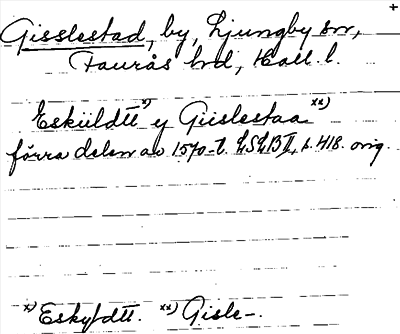 +
Gisslestad, by, Ljungby sn,
Faurås hd, Hall. l.
Eskiildtt x) y Giislestaa xx)
förra delen av 1570-t. LSLB II, s. 418. orig.
x) Eskyldtt. xx) Gisle-.